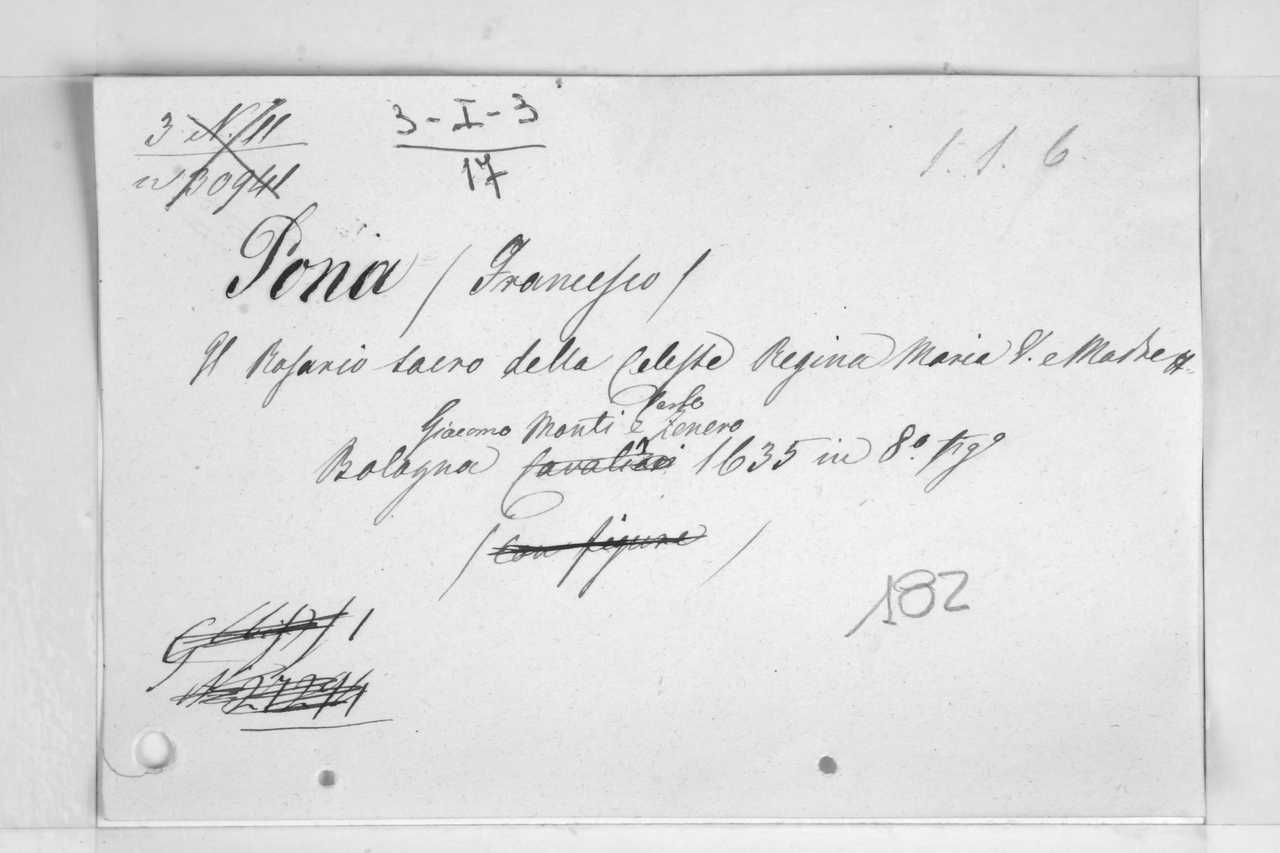 3-I-3
17
1. 1. 6
Pona (Francesco)
Il Rosario sacro della Celeste Regina Maria V. e Madre
Giacomo Monti e Carlo Zenero
Bologna Cavalieri 1635 in 8º fig
(con figure)
182